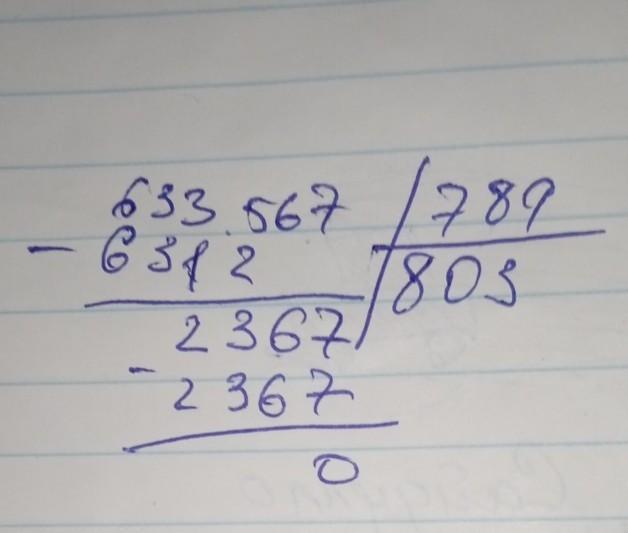 633.567 789
- 6312 803
2367
- 2367
0